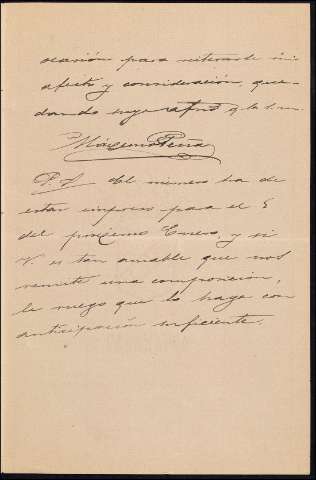 ocasión para reiterarle mi
afecto y consideración, que-
dando suyo afmo q. b. s. m.
Máximo Peña
P. S. El número ha de
estar impreso para el 5
del próximo Enero, y si
V. es tan amable que nos
remite una composición,
le ruego que lo haga con
anticipación suficiente.